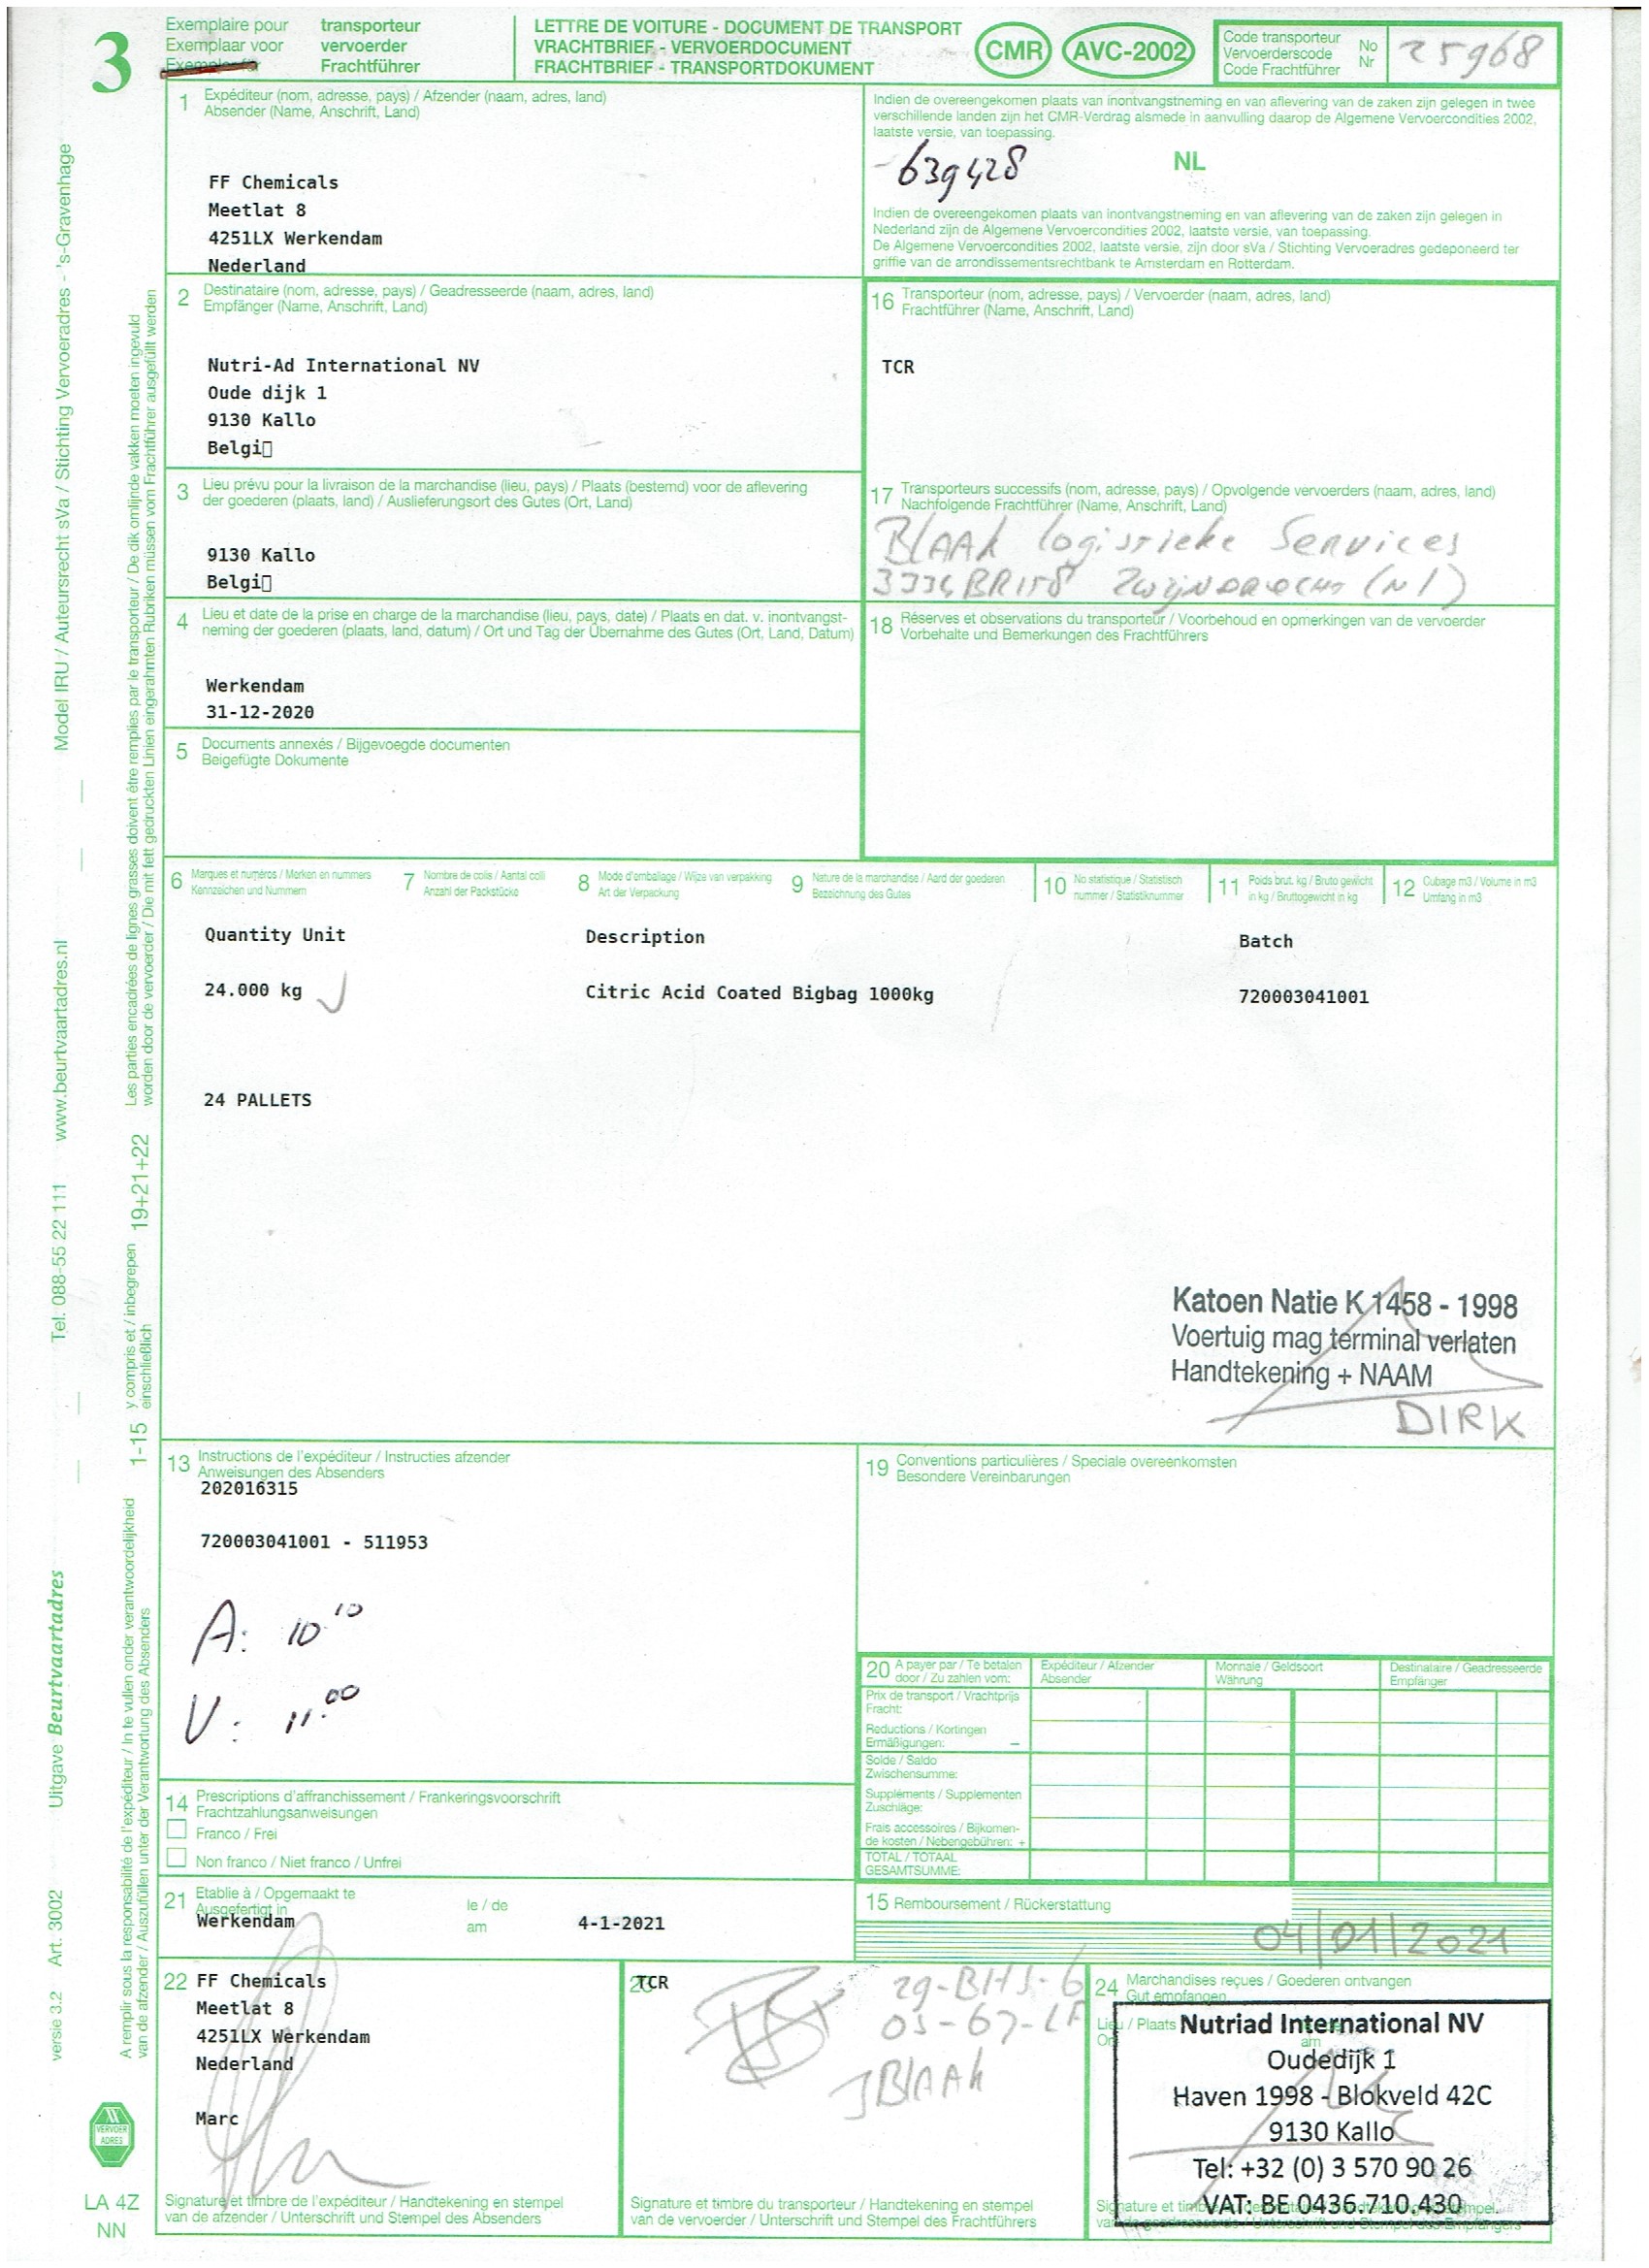 3
Exemplaire pour transporteur
Exemplaar voor vervoerder
Exemplar für Frachtführer
LETTRE DE VOITURE - DOCUMENT DE TRANSPORT
VRACHTBRIEF - VERVOERDOCUMENT
FRACHTBRIEF - TRANSPORTDOKUMENT
CMR AVC-2002
Code transporteur
Vervoerderscode
Code Frachtführer
No
Nr
25968
1 Expéditeur (nom, adresse, pays) / Afzender (naam, adres, land)
Absender (Name, Anschrift, Land)
FF Chemicals
Meetlat 8
4251LX Werkendam
Nederland
Indien de overeengekomen plaats van inontvangstneming en van aflevering van de zaken zijn gelegen in twee
verschillende landen zijn het CMR-Verdrag alsmede in aanvulling daarop de Algemene Vervoercondities 2002,
laatste versie, van toepassing.
-639428
NL
Indien de overeengekomen plaats van inontvangstneming en van aflevering van de zaken zijn gelegen in
Nederland zijn de Algemene Vervoercondities 2002, laatste versie, van toepassing.
De Algemene Vervoercondities 2002, laatste versie, zijn door sVa / Stichting Vervoeradres gedeponeerd ter
griffie van de arrondissementsrechtbank te Amsterdam en Rotterdam.
2 Destinataire (nom, adresse, pays) / Geadresseerde (naam, adres, land)
Empfänger (Name, Anschrift, Land)
Nutri-Ad International NV
Oude dijk 1
9130 Kallo
Belgi▯
16 Transporteur (nom, adresse, pays) / Vervoerder (naam, adres, land)
Frachtführer (Name, Anschrift, Land)
TCR
3 Lieu prévu pour la livraison de la marchandise (lieu, pays) / Plaats (bestemd) voor de aflevering
der goederen (plaats, land) / Auslieferungsort des Gutes (Ort, Land)
9130 Kallo
Belgi▯
17 Transporteurs successifs (nom, adresse, pays) / Opvolgende vervoerders (naam, adres, land)
Nachfolgende Frachtführer (Name, Anschrift, Land)
BLAAK logistieke Services
3334BR158 Zwijndrecht (Nl)
4 Lieu et date de la prise en charge de la marchandise (lieu, pays, date) / Plaats en dat. v. inontvangst-
neming der goederen (plaats, land, datum) / Ort und Tag der Übernahme des Gutes (Ort, Land, Datum)
Werkendam
31-12-2020
18 Réserves et observations du transporteur / Voorbehoud en opmerkingen van de vervoerder
Vorbehalte und Bemerkungen des Frachtführers
5 Documents annexés / Bijgevoegde documenten
Beigefügte Dokumente
6 Marques et numéros / Merken en nummers
Kennzeichen und Nummern
7 Nombre de colis / Aantal colli
Anzahl der Packstücke
8 Mode d'emballage / Wijze van verpakking
Art der Verpackung
9 Nature de la marchandise / Aard der goederen
Bezeichnung des Gutes
10 No statistique / Statistisch
nummer / Statistiknummer
11 Poids brut, kg / Bruto gewicht
in kg / Bruttogewicht in kg
12 Cubage m3 / Volume in m3
Umfang in m3
Quantity Unit Description Batch
24.000 kg Citric Acid Coated Bigbag 1000kg 720003041001
24 PALLETS
Katoen Natie K 1458 - 1998
Voertuig mag terminal verlaten
Handtekening + NAAM
DIRK
13 Instructions de l'expéditeur / Instructies afzender
Anweisungen des Absenders
202016315
720003041001 - 511953
A: 10 10
V: 11.00
19 Conventions particulières / Speciale overeenkomsten
Besondere Vereinbarungen
20 A payer par / Te betalen
door / Zu zahlen vom:
Expéditeur / Afzender
Absender
Monnaie / Geldsoort
Währung
Destinataire / Geadresseerde
Empfänger
Prix de transport / Vrachtprijs
Fracht:
Reductions / Kortingen
Ermäßigungen: –
Solde / Saldo
Zwischensumme:
Suppléments / Supplementen
Zuschläge:
Frais accessoires / Bijkomen-
de kosten / Nebengebühren: +
TOTAL / TOTAAL
GESAMTSUMME:
14 Prescriptions d'affranchissement / Frankeringsvoorschrift
Frachtzahlungsanweisungen
Franco / Frei
Non franco / Niet franco / Unfrei
21 Etablie à / Opgemaakt te
Ausgefertigt in
Werkendam
le / de
am
4-1-2021
15 Remboursement / Rückerstattung
04/01/2021
22 FF Chemicals
Meetlat 8
4251LX Werkendam
Nederland
Marc
Signature et timbre de l'expéditeur / Handtekening en stempel
van de afzender / Unterschrift und Stempel des Absenders
23 TCR
29-BHS-6
05-67-LF
JBlAAk
Signature et timbre du transporteur / Handtekening en stempel
van de vervoerder / Unterschrift und Stempel des Frachtführers
24 Marchandises reçues / Goederen ontvangen
Gut empfangen
Lieu / Plaats
am
Nutriad International NV
Oudedijk 1
Haven 1998 - Blokveld 42C
9130 Kallo
Tel: +32 (0) 3 570 90 26
VAT: BE 0436.710.430
Model IRU / Auteursrecht sVa / Stichting Vervoeradres - 's-Gravenhage
www.beurtvaartadres.nl
Tel. 088-55 22 111
Uitgave Beurtvaartadres
Art. 3002
versie 3.2
Les parties encadrées de lignes grasses doivent être remplies par le transporteur / De dik omlijnde vakken moeten ingevuld
worden door de vervoerder / Die mit fett gedruckten Linien eingerahmten Rubriken müssen vom Frachtführer ausgefüllt werden
1-15 y compris et / inbegrepen
einschließlich
19+21+22
A remplir sous la responsabilité de l'expéditeur / In te vullen onder verantwoordelijkheid
van de afzender / Auszufüllen unter der Verantwortung des Absenders
VERVOER
ADRES
LA 4Z
NN